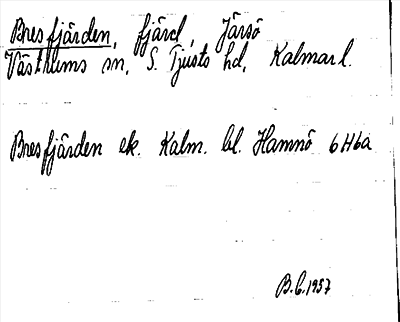 Bresfjärden, fjärd, Järsö
Västrums sn, S. Tjusts hd, Kalmar l.
Bresfjärden ek. Kalm. bl. Hamnö 6H6a
B.C. 1957